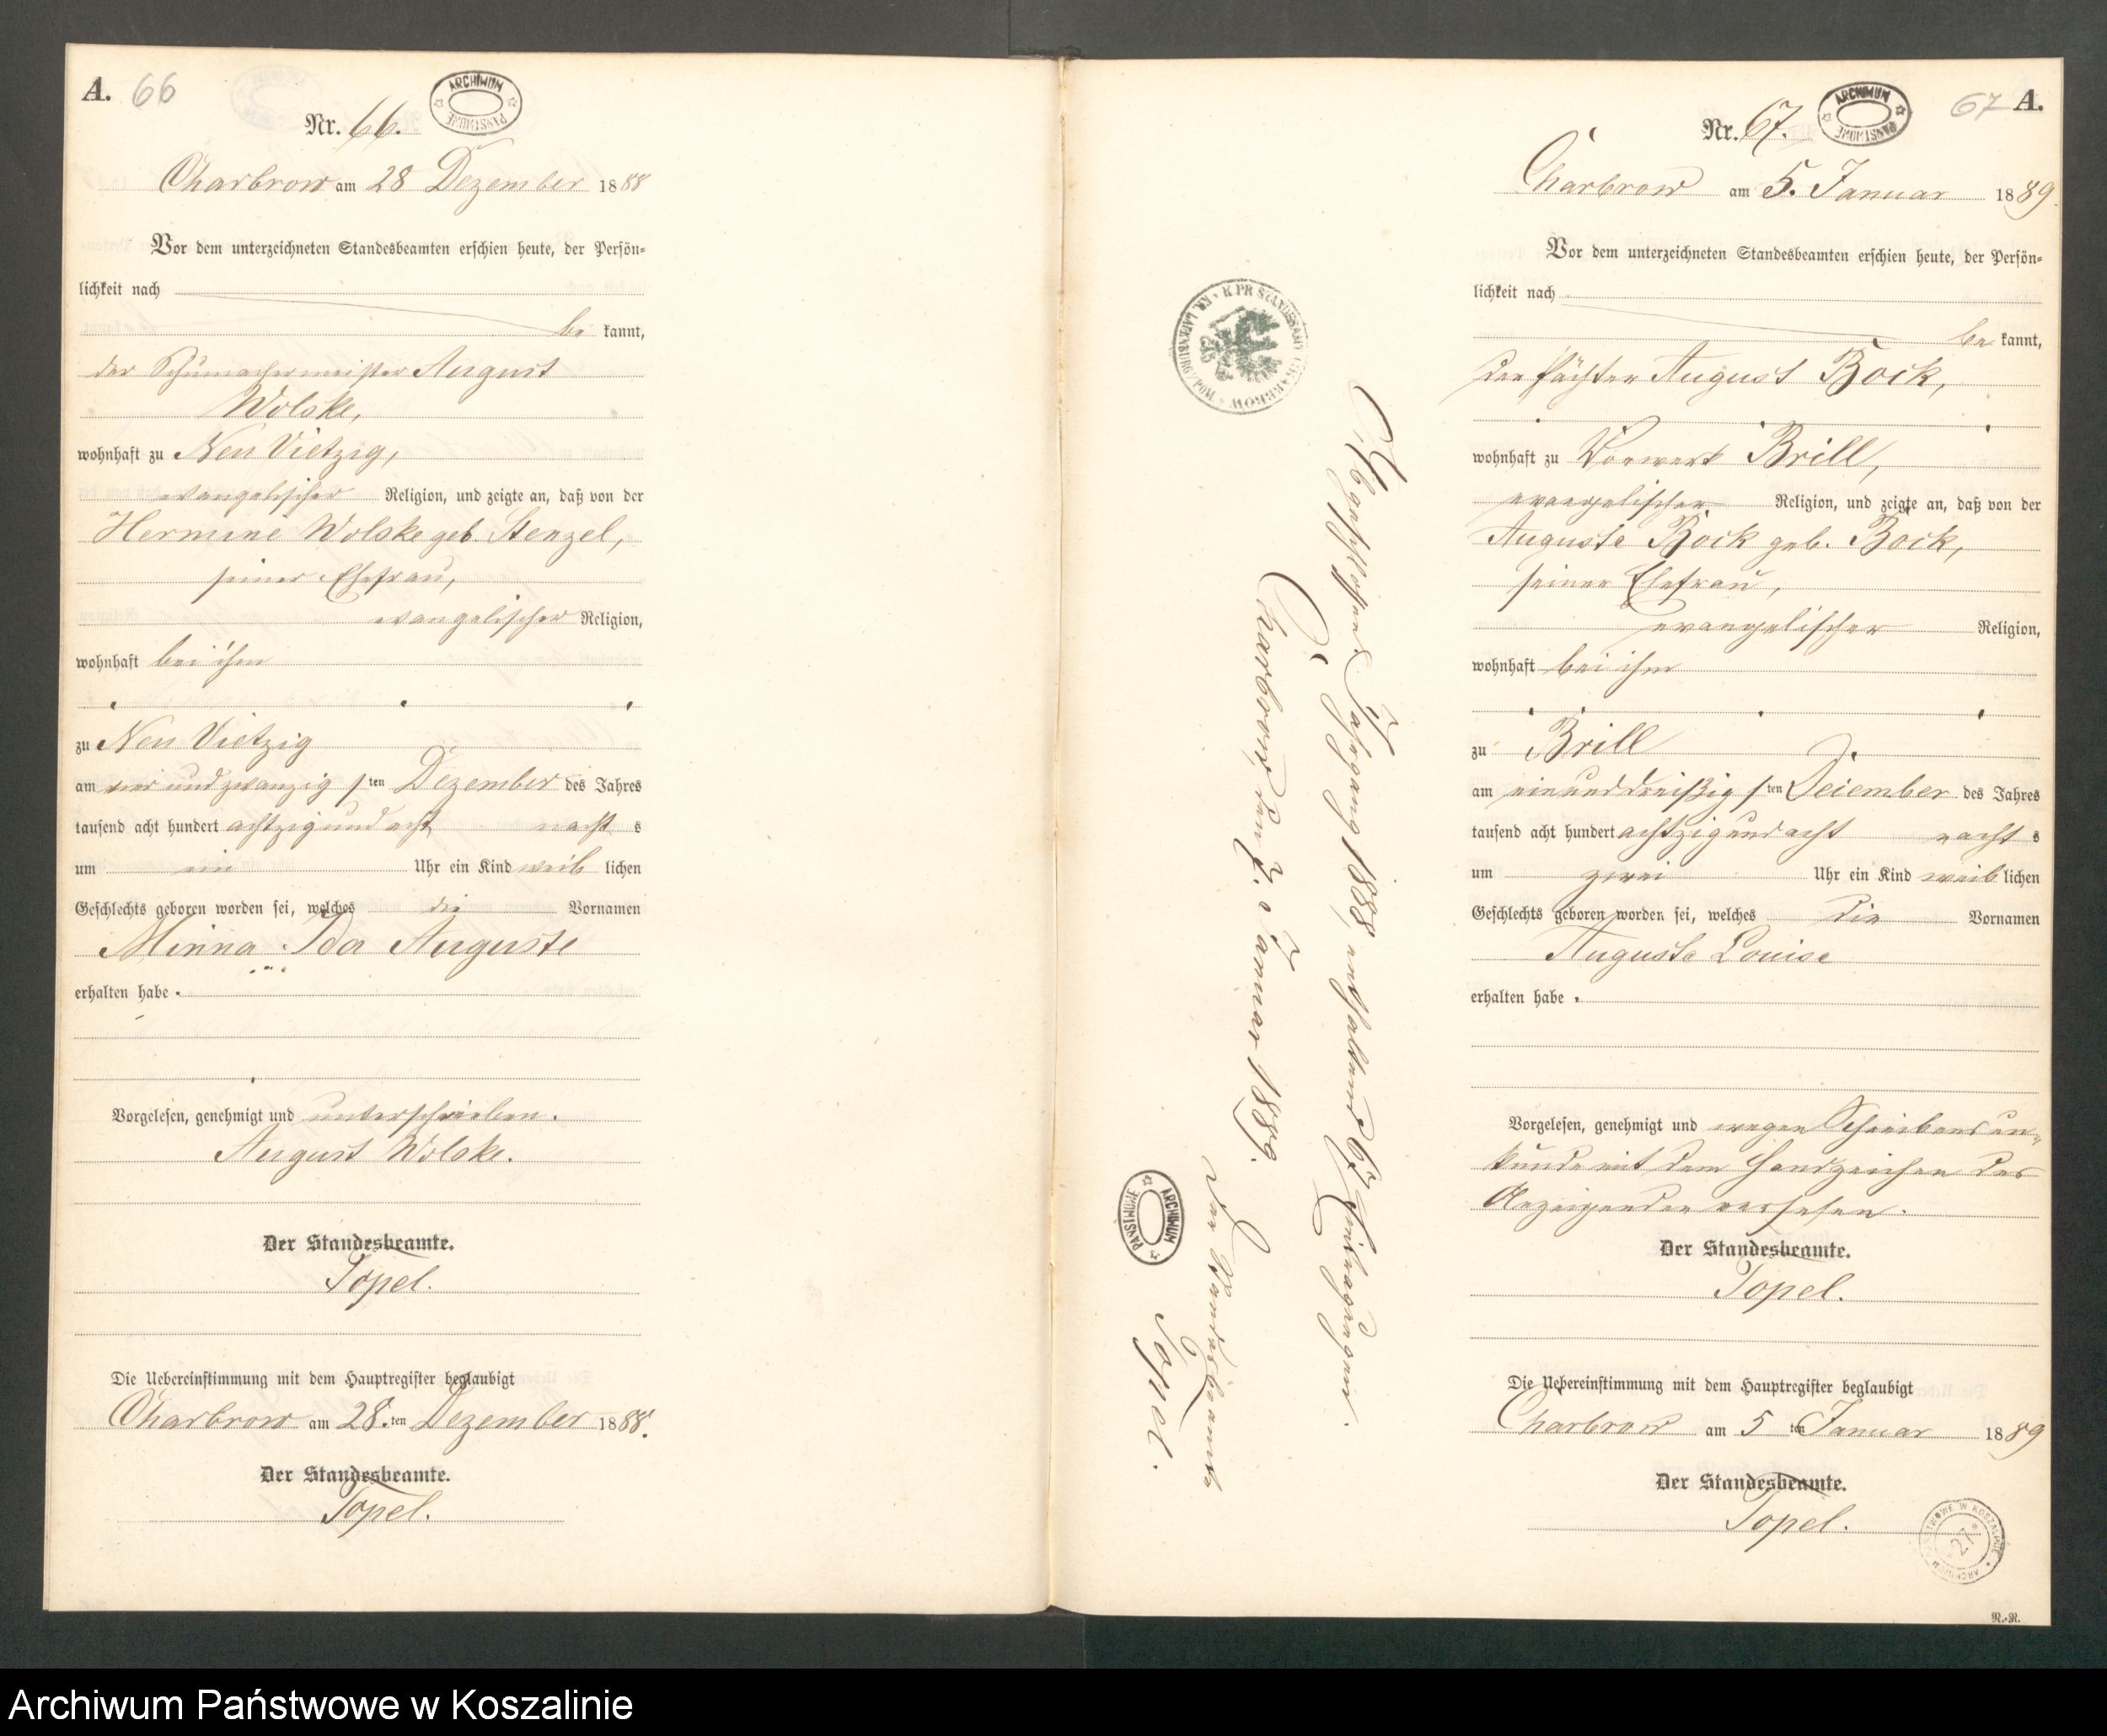 A. 66
ARCHIWUM PAŃSTWOWE
Nr. 66.
Charbrow am 28 Dezember 1888
Vor dem unterzeichneten Standesbeamten erschien heute, der Persön-
lichkeit nach
be kannt,
der Schumachermeister August
Wolske,
wohnhaft zu Neu Vietzig,
evangelischer Religion, und zeigte an, daß von der
Hermine Wolske geb. Stenzel,
seiner Ehefrau,
evangelischer Religion,
wohnhaft bei ihm
zu Neu Vietzig
am vier und zwanzig sten Dezember des Jahres
tausend acht hundert achtzig und acht nacht s
um ein Uhr ein Kind weib lichen
Geschlechts geboren worden sei, welches die Vornamen
Minna Ida Auguste
erhalten habe.
Vorgelesen, genehmigt und unterschrieben.
August Wolske.
Der Standesbeamte.
Topel.
Die Uebereinstimmung mit dem Hauptregister beglaubigt
Charbrow am 28. ten Dezember 1888.
Der Standesbeamte.
Topel.
K. PR. STANDESAMT CHARBROW * KR. LAUENBURG / POM. *
Abgeschlossen Jahrgang 1888, enthaltend 67 Eintragungen.
Charbrow, den 2. Januar 1889.
Der Standesbeamte
Topel.
ARCHIWUM PAŃSTWOWE
67 A.
ARCHIWUM PAŃSTWOWE
Nr. 67.
Charbrow am 5. Januar 1889.
Vor dem unterzeichneten Standesbeamten erschien heute, der Persön-
lichkeit nach
be kannt,
der Pächter August Bock,
wohnhaft zu Vorwerk Brill,
evangelischer Religion, und zeigte an, daß von der
Auguste Bock geb. Bock,
seiner Ehefrau,
evangelischer Religion,
wohnhaft bei ihm
zu Brill
am einunddreißig sten Dezember des Jahres
tausend acht hundert achtzig und acht nacht s
um zwei Uhr ein Kind weib lichen
Geschlechts geboren worden sei, welches die Vornamen
Auguste Louise
erhalten habe.
Vorgelesen, genehmigt und wegen Schreibensun-
kunde mit dem Handzeichen des
Anzeigenden versehen.
Der Standesbeamte.
Topel.
Die Uebereinstimmung mit dem Hauptregister beglaubigt
Charbrow am 5 ten Januar 1889
Der Standesbeamte.
Topel.
ARCHIWUM PAŃSTWOWE W KOSZALINIE * 27 *
N.-N.
Archiwum Państwowe w Koszalinie